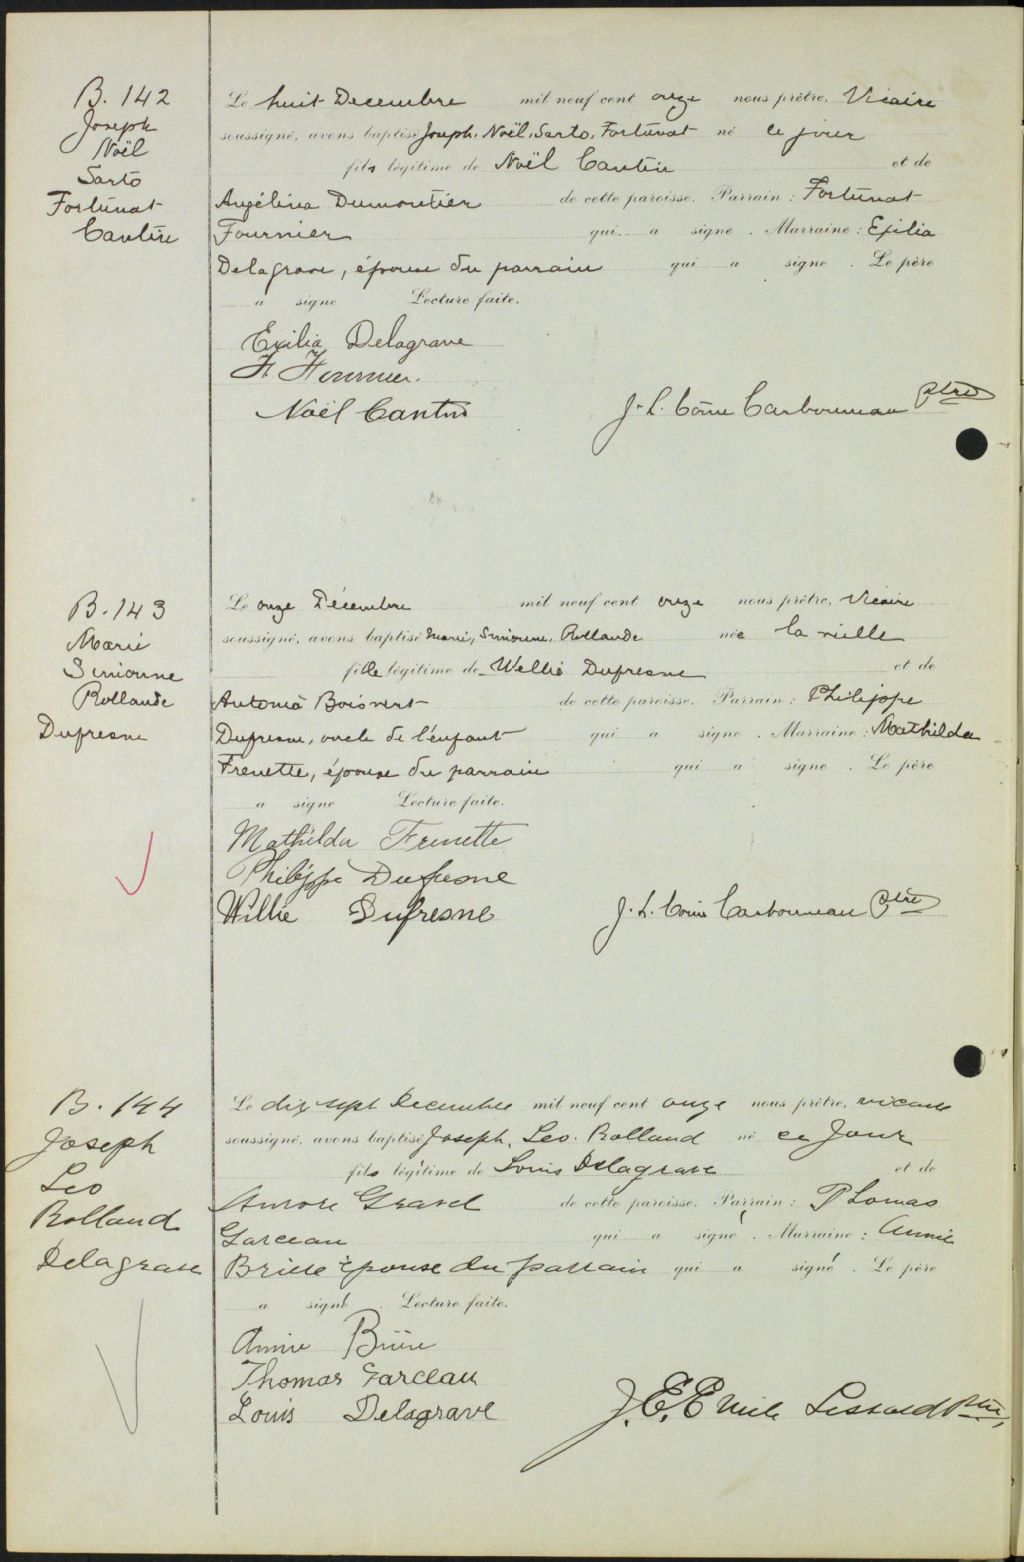 B. 142
Joseph
Noël
Sarto
Fortunat
Cantin
Le huit Decembre mil neuf cent onze nous prêtre, Vicaire
soussigné, avons baptisé Joseph, Noël, Sarto, Fortunat né ce jour
fils légitime de Noël Cantin et de
Angélina Dumontier de cette paroisse. Parrain : Fortunat
Fournier qui a signé . Marraine : Exilia
Delagrave, épouse du parrain qui a signé . Le père
a signé Lecture faite.
Exilia Delagrave
F. Fournier.
Noël Cantin
J. L. Côme Carbonneau ptre
B. 143
Marie
Simonne
Rollande
Dufresne
Le onze Décembre mil neuf cent onze nous prêtre, Vicaire
soussigné, avons baptisé Marie, Simonne, Rollande née la veille
fille légitime de Wellie Dufresne et de
Antonia Boisvert de cette paroisse. Parrain : Philippe
Dufresne, oncle de l'enfant qui a signé . Marraine : Mathilda
Frenette, épouse du parrain qui a signé . Le père
a signé Lecture faite.
Mathilda Frenette
Philippe Dufresne
Willie Dufresne
J. L. Côme Carbonneau Ptre
B. 144
Joseph
Leo
Rolland
Delagrave
Le dix sept Decembre mil neuf cent onze nous prêtre, vicaire
soussigné, avons baptisé Joseph, Leo. Rolland né ce jour
fils légitime de Louis Delagrave et de
Aurore Gravel de cette paroisse. Parrain : Thomas
Garceau qui a signé . Marraine : Annie
Briere épouse du parrain qui a signé . Le père
a signé Lecture faite.
Annie Brière
Thomas Garceau
Louis Delagrave
J. E. Emile Lessard Ptre,